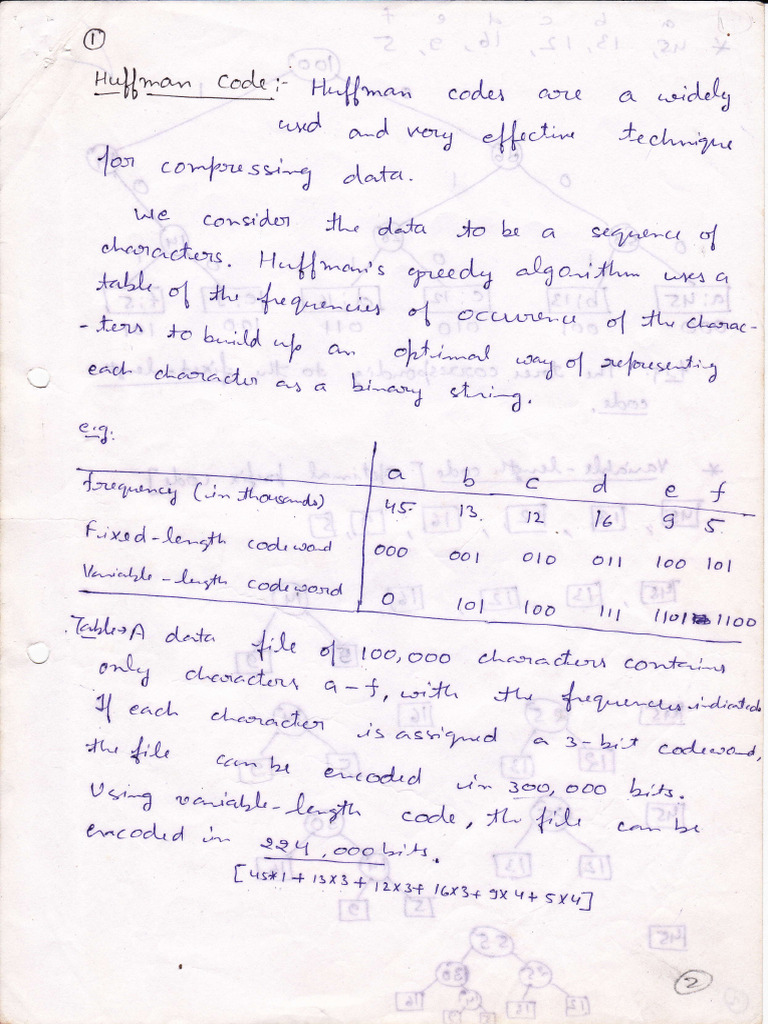 1
Huffman Code:- Huffman codes are a widely
used and very effective technique
for compressing data.
We consider the data to be a sequence of
characters. Huffman's greedy algorithm uses a
table of the frequencies of occurrence of the charac-
-ters to build up an optimal way of representing
each character as a binary string.
e.g:
a b c d e f
Frequency (in thousands) 45. 13. 12 16 9 5.
Fixed-length codeword 000 001 010 011 100 101
Variable-length codeword 0 101 100 111 1101 1100
Table→ A data file of 100,000 characters contains
only characters a-f, with the frequencies indicated
If each character is assigned a 3-bit codeword,
the file can be encoded in 300,000 bits.
Using variable-length code, the file can be
encoded in 224,000 bits.
[45*1 + 13×3 + 12×3 + 16×3 + 9×4 + 5×4]
2